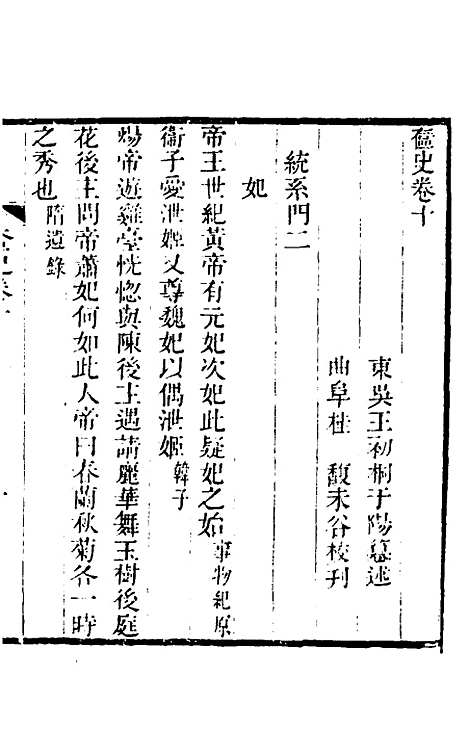 奩史卷十
東吳王初桐于陽纂述
曲阜桂 馥未谷校刊
統系門二
妃
帝王世紀黃帝有元妃次妃此疑妃之始事物紀原
衞子愛泄姬又尊魏妃以偶泄姬韓子
煬帝遊雞臺恍惚與陳後主遇請麗華舞玉樹後庭
花後主問帝蕭妃何如此人帝曰春蘭秋菊各一時
之秀也隋遺錄